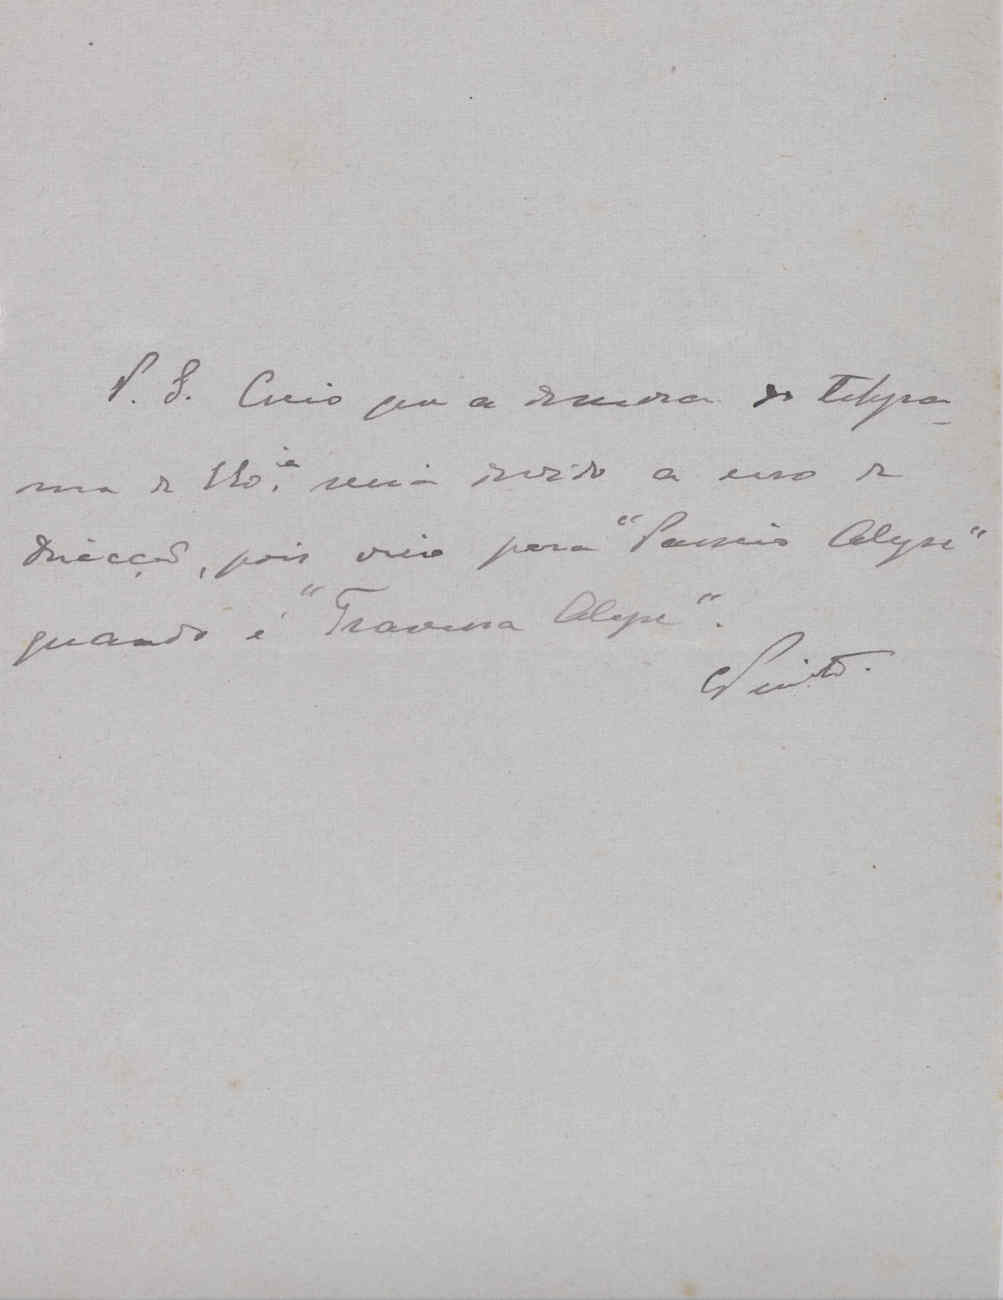 P. S. Creio que a demora do telegra-
ma de V. Ex.ia seria devido a erro de
direcção, pois veio para "Passeio Alegre"
quando é "Travessa Alegre".
Pinto.